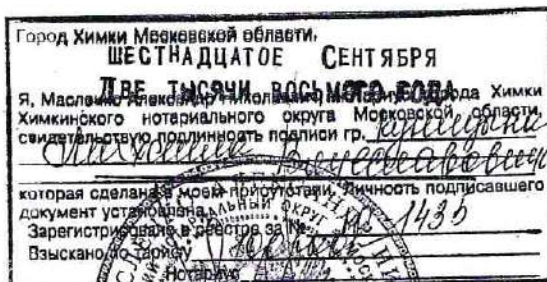 Город Химки Московской области,
ШЕСТНАДЦАТОЕ СЕНТЯБРЯ
ДВЕ ТЫСЯЧИ ВОСЬМОГО ГОДА
Я, Александр Николаевич, нотариус города Химки
Химкинского нотариального округа Московской области,
свидетельствую подлинность подписи гр.
Михаила Вячеславовича
которая сделана в моем присутствии. Личность подписавшего
документ установлена.
Зарегистрировано в реестре за № 1435
Взыскано по тарифу
Нотариус